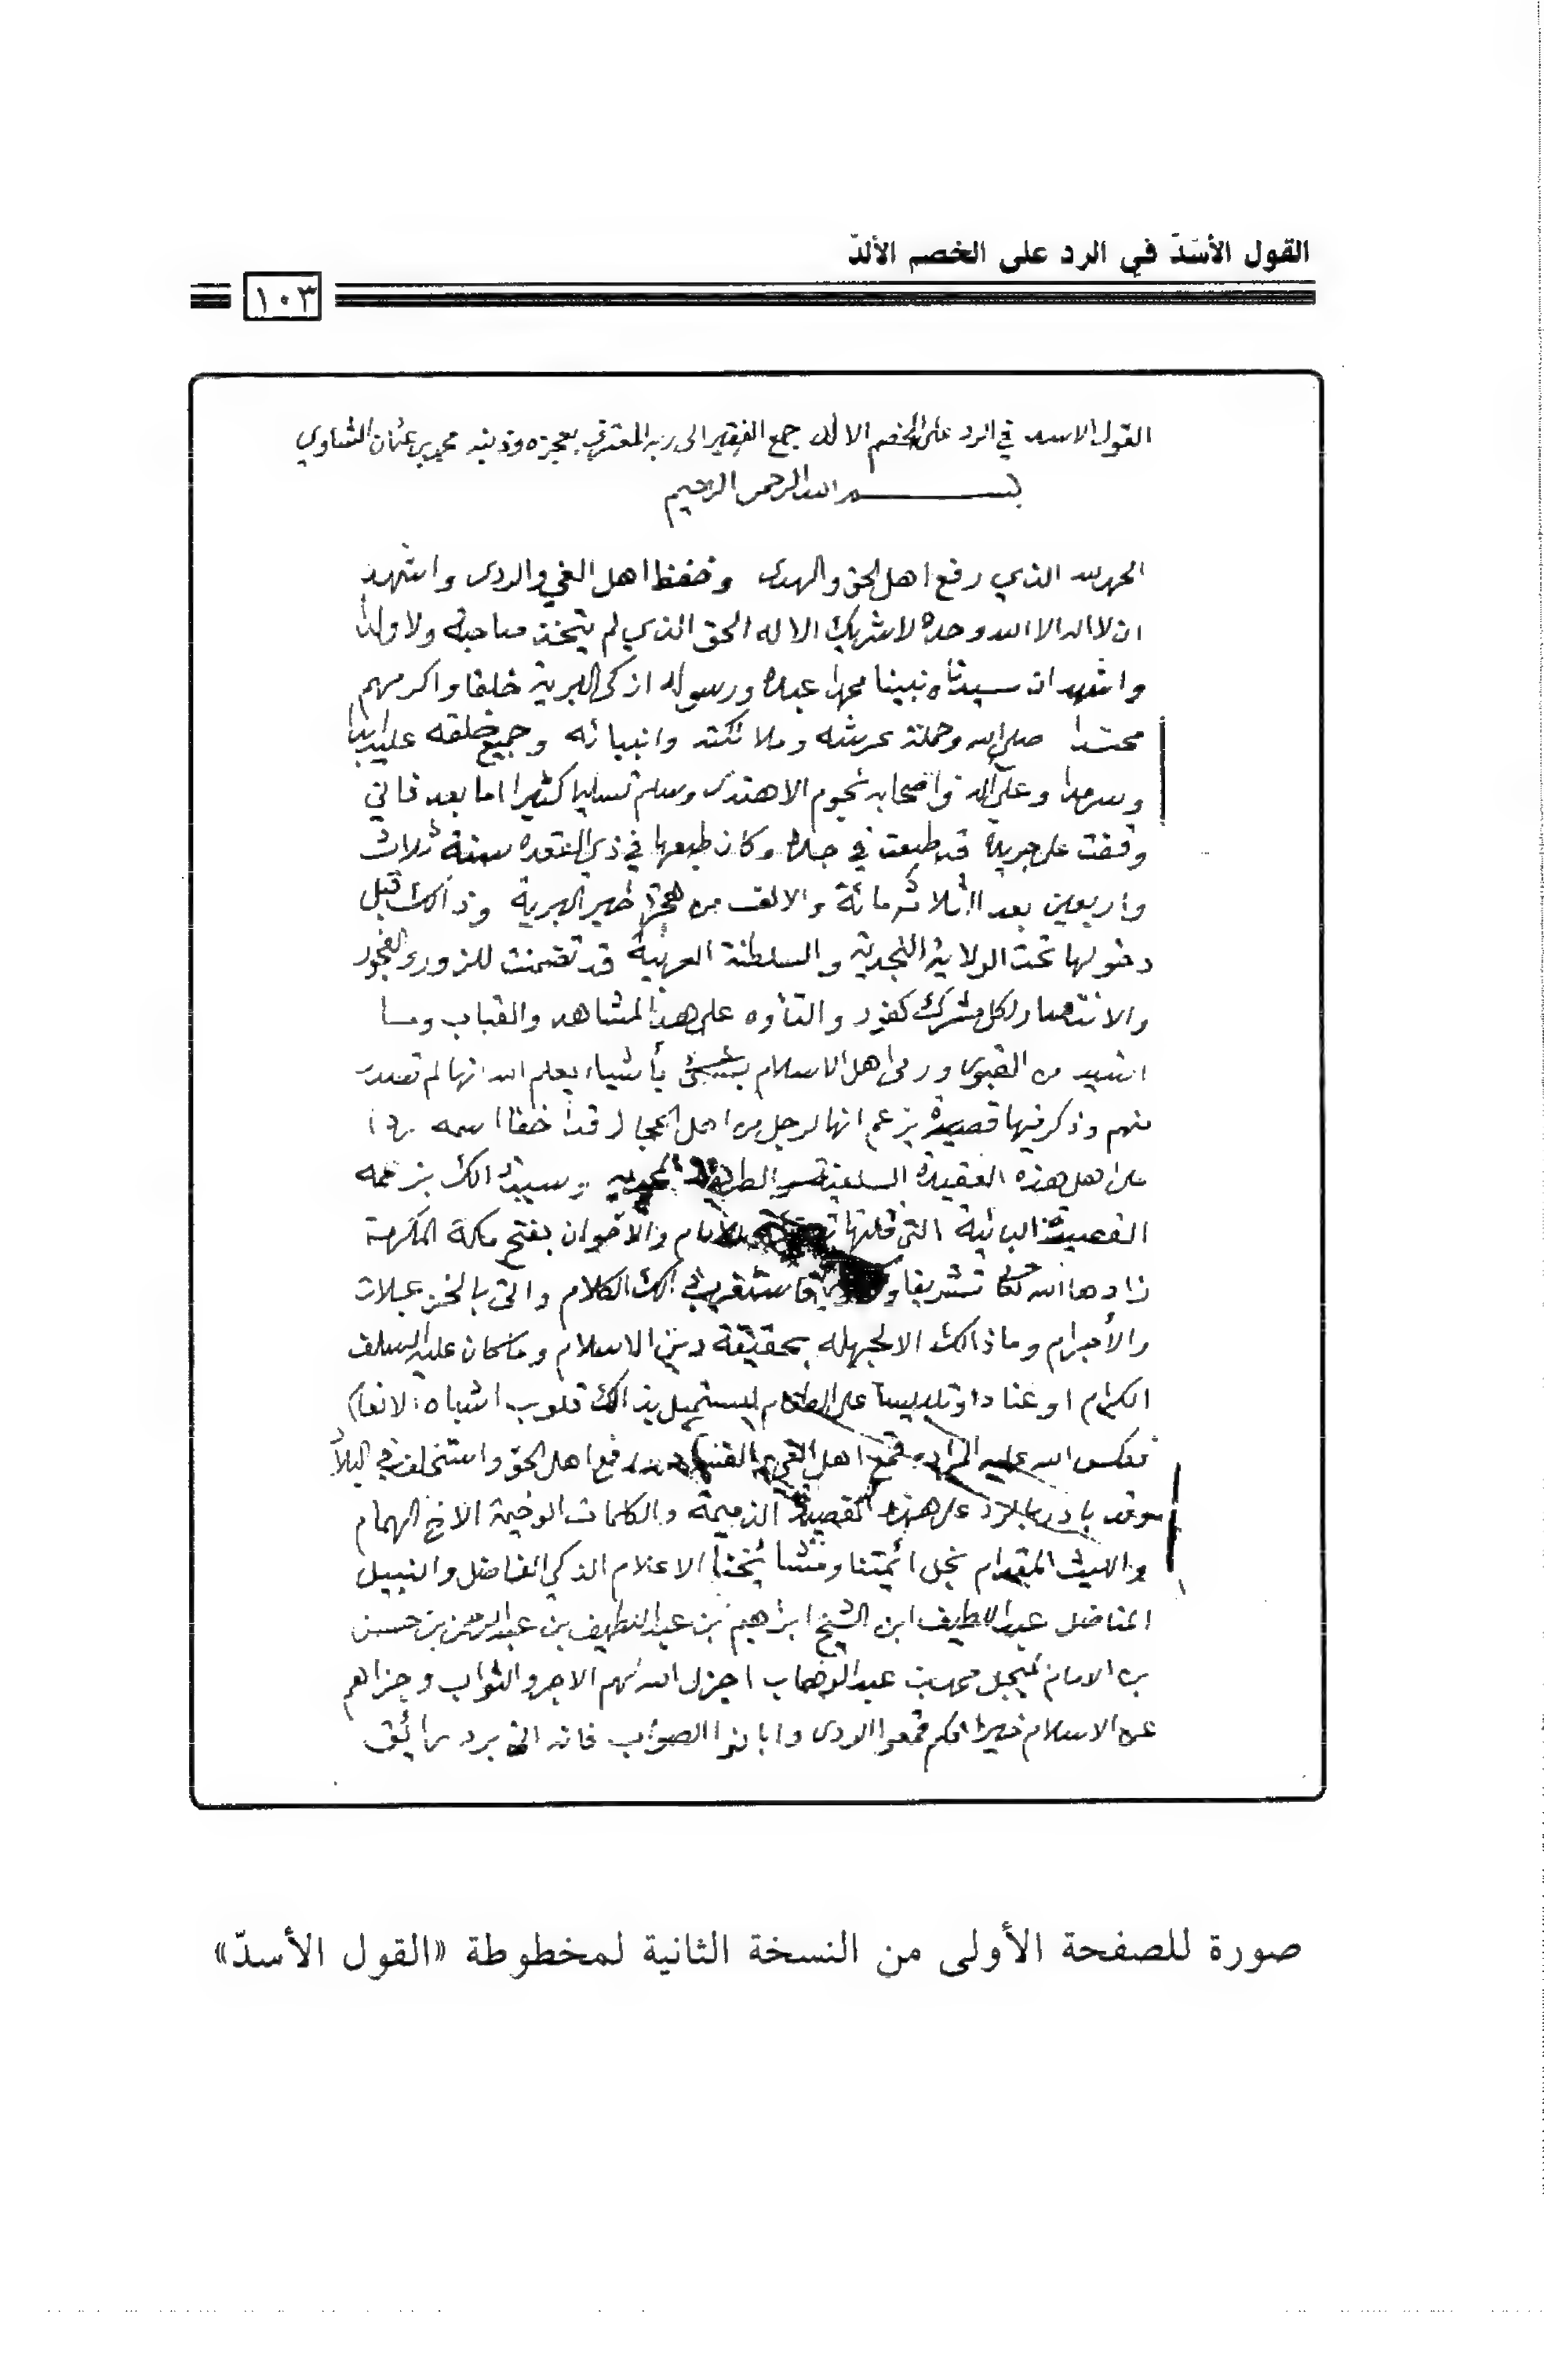 القول الأسَدّ في الرد على الخصم الألدّ
١٠٣
القول الاسد في الرد على الخصم الالد جمع الفقير الى ربه المعترف بعجزه وذنبه محمد بن عثمان الشاوي
بسم الله الرحمن الرحيم
الحمد لله الذي رفع اهل الحق والهدى وخفض اهل الغي والردى واشهد
ان لا اله الا الله وحده لا شريك الاله الحق الذي لم يتخذ صاحبة ولا ولدا
واشهد ان سيدنا ونبينا محمدا عبده ورسوله ازكى البرية خلقا واكرمهم
محتدا صلى الله وحملة عرشه وملائكته وانبيائه وجميع خلقه عليه ابدا
وسرمدا وعلى آله واصحابه نجوم الاهتدى وسلم تسليما كثيرا اما بعد فاني
وقفت على جريدة قد طبعت في جده وكان طبعها في ذي القعده سنة ثلاث
واربعين بعد الثلاثمائة والالف من هجرة خير البرية وذالك قبل
دخولها تحت الولاية النجدية والسلطنة العربية قد تضمنت للزور والفجور
والانتصار لكل مشرك كفور والتأوه على هذا المشاهد والقباب وما
اشيد من القبور ورمى اهل الاسلام بأشياء يعلم الله انها لم تصدر
منهم وذكر فيها قصيدة يزعم انها لرجل من اهل قد اخفا اسمه ردا
على اهل هذه العقيدة السلفية والطريقة المحمدية وسبب ذالك بزعمه
القصيدة البائية التي قلتها للامام والاخوان بفتح مكة المكرمة
زادها الله تشريفا فاستغرب ذالك الكلام واتى بالخزعبلات
والأجرام وما ذالك الا لجهله بحقيقة دين الاسلام وما كان عليه السلف
الكرام او عنادا وتلبيسا على الطغام ليستميل بذالك قلوب اشباه الانعام
فعكس الله عليه المراد وقمع اهل الغي ورفع اهل الحق واستخلفهم في البلاد
وقد بادر بالرد على هذه القصيدة الذميمة والكلمات الوخيمة الاخ الهمام
والليث المقدام نجل ائمتنا ومشايخنا الاعلام الذكي الفاضل والنبيل
المناضل عبد اللطيف ابن الشيخ ابراهيم بن عبد اللطيف بن عبد الرحمن بن حسن
بن الامام محمد بن عبد الوهاب اجزل الله لهم الاجر والثواب وجزاهم
عن الاسلام خيرا فكم قمعوا الردى وابانوا الصواب فانه اتى برد رائق
صورة للصفحة الأولى من النسخة الثانية لمخطوطة «القول الأسدّ»